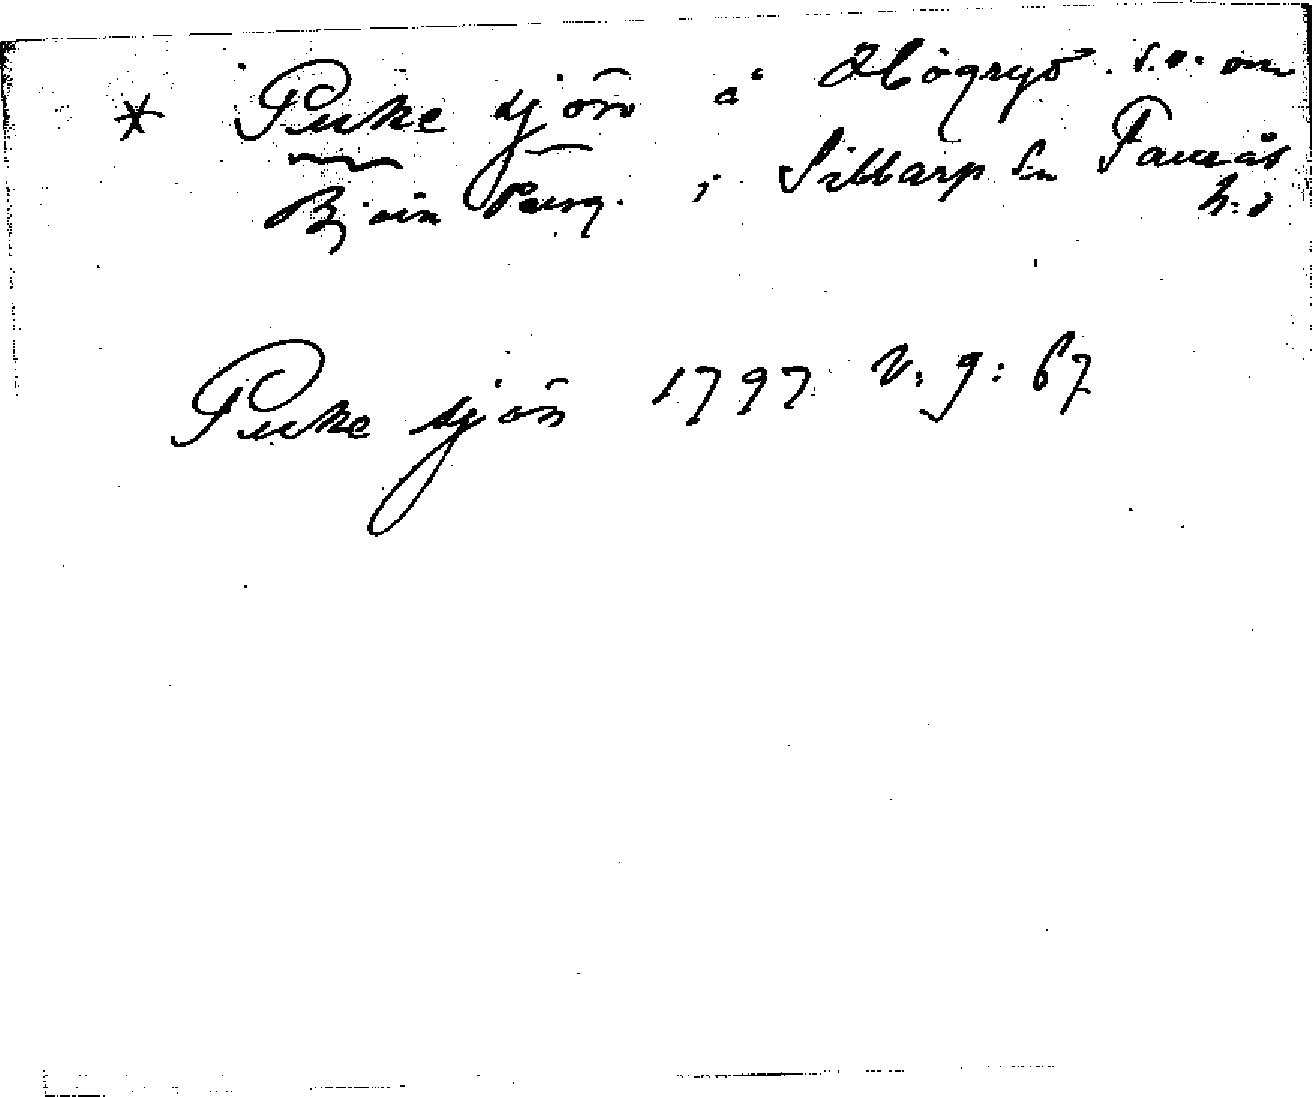 * Puke sjön å Högryd s.o. om
Björn Torg. i Sibbarp sn Faurås
h:d
Puke sjön 1797 v. g: 67